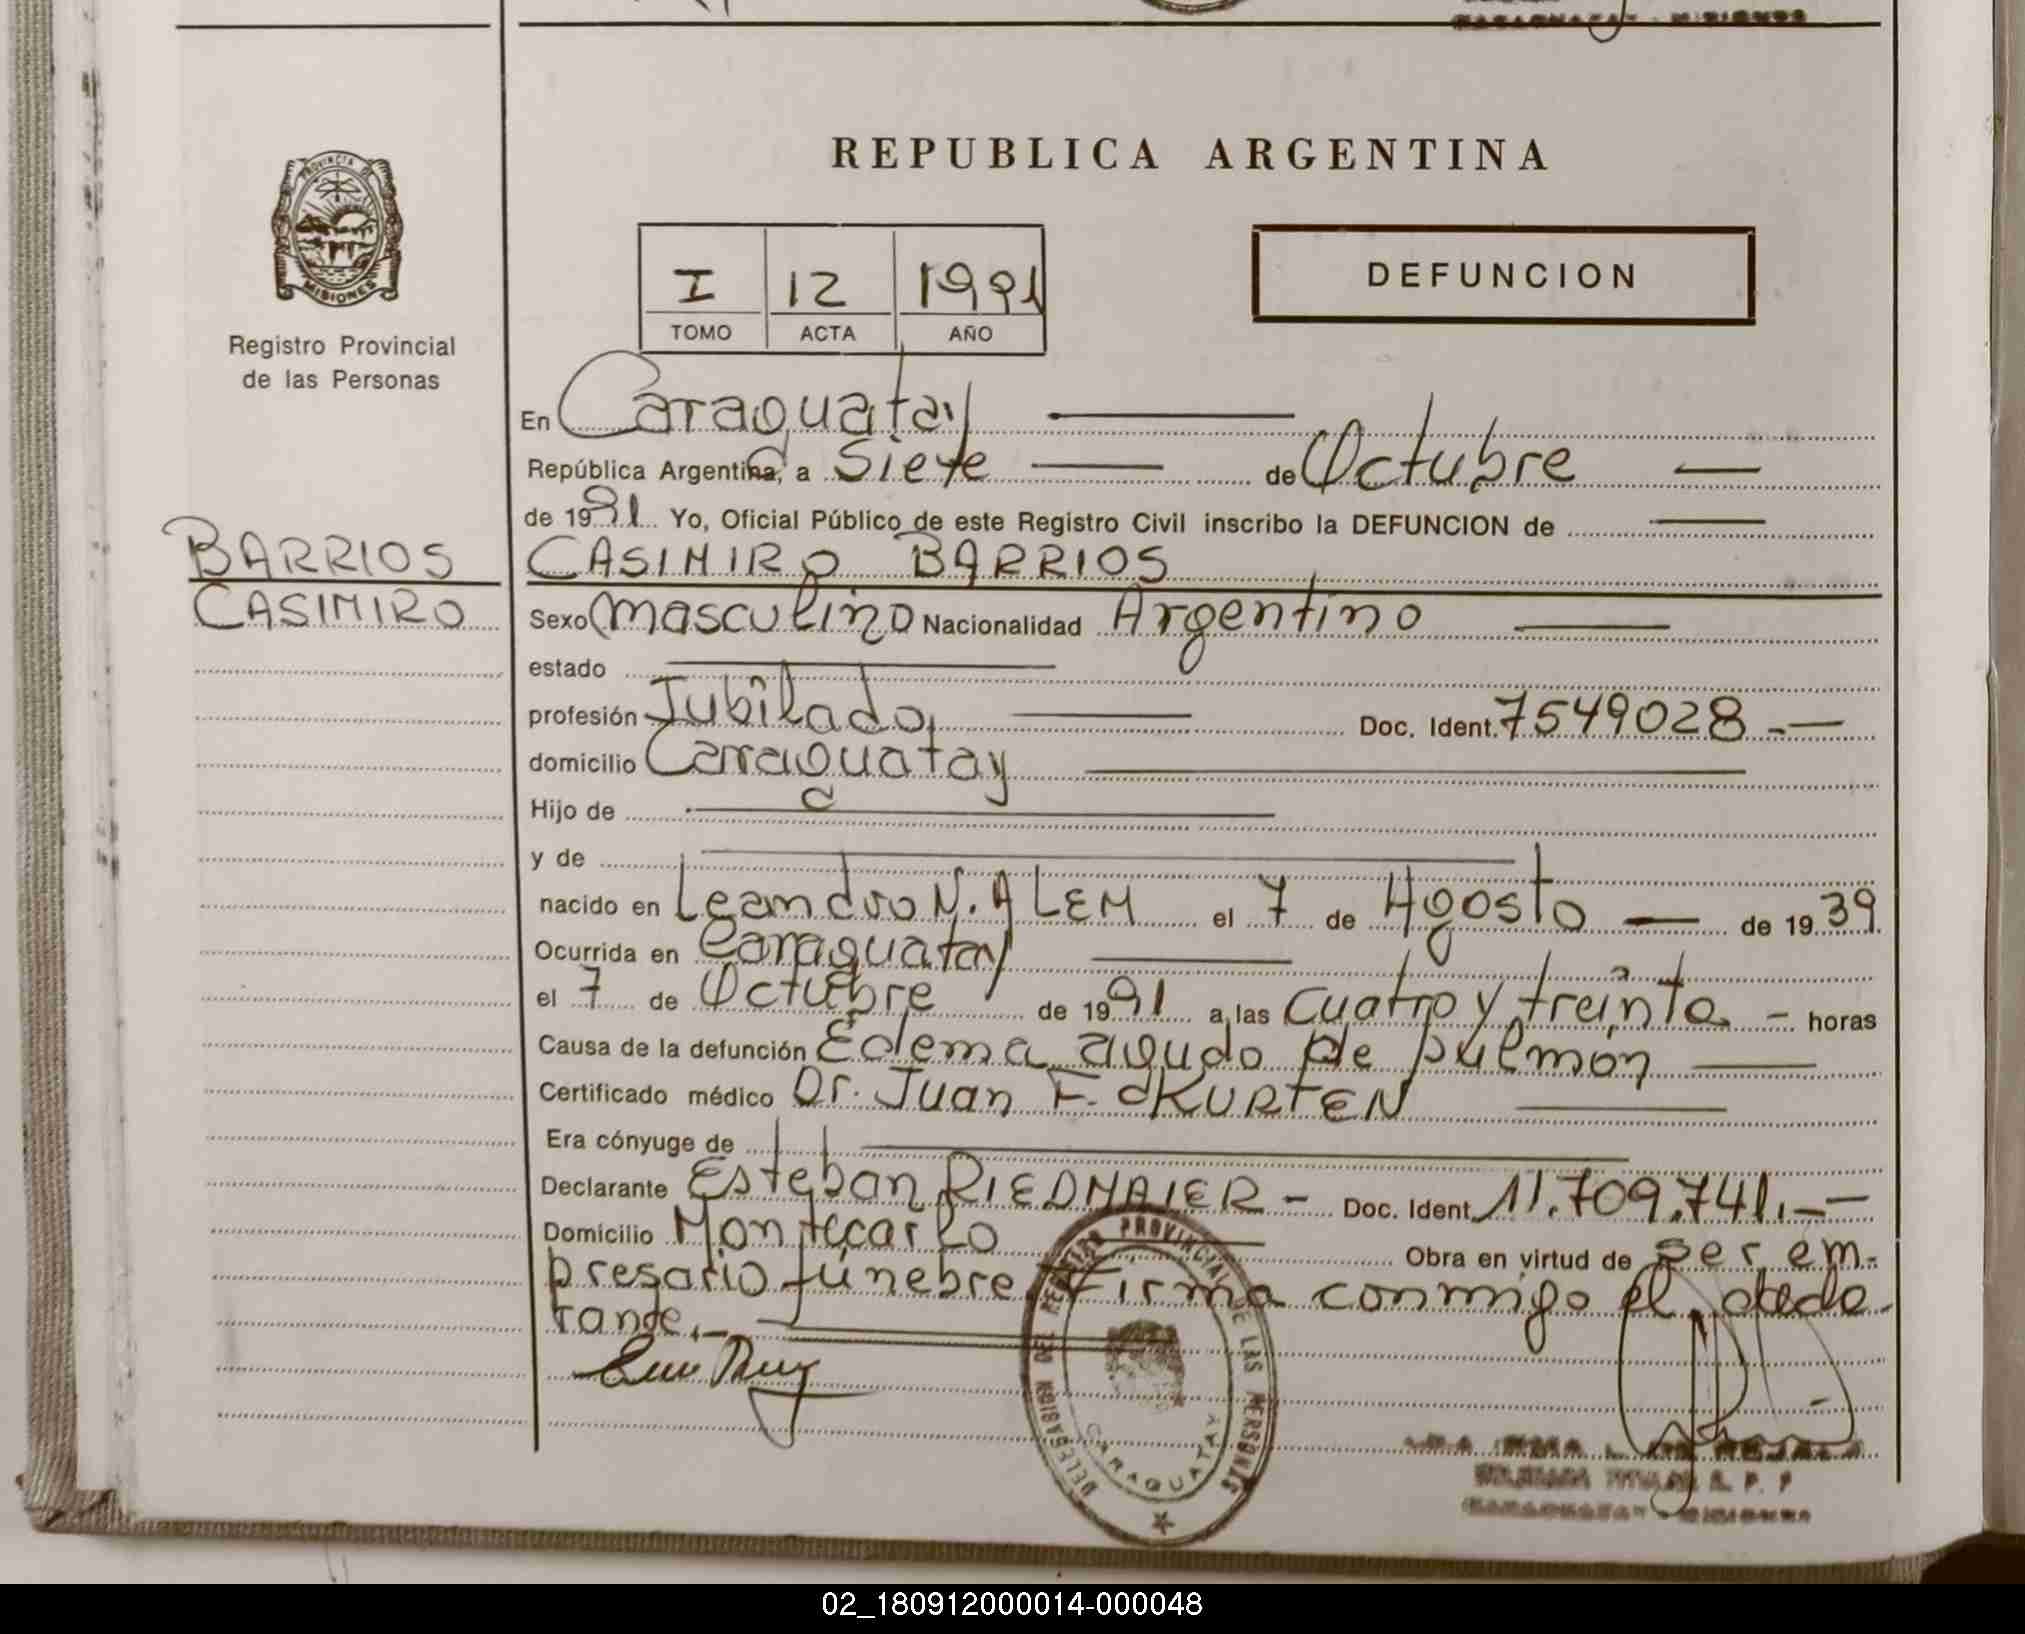 PROVINCIA DE
MISIONES
Registro Provincial
de las Personas
BARRIOS
CASIMIRO
REPUBLICA ARGENTINA
I 12 1991
TOMO ACTA AÑO
DEFUNCION
En Caraguatay
República Argentina, a Siete de Octubre
de 1991 Yo, Oficial Público de este Registro Civil inscribo la DEFUNCION de
CASIMIRO BARRIOS
Sexo Masculino Nacionalidad Argentino
estado
profesión Jubilado, Doc. Ident. 7549028.-
domicilio Caraguatay
Hijo de
y de
nacido en Leandro N. ALEM el 7 de Agosto de 1939
Ocurrida en Caraguatay
el 7 de Octubre de 1991 a las Cuatro y treinta - horas
Causa de la defunción Edema agudo de pulmón
Certificado médico Dr. Juan F. KURTEN
Era cónyuge de
Declarante Esteban RIEDMAIER - Doc. Ident. 11.709.741.-
Domicilio Montecarlo Obra en virtud de ser em-
presario fúnebre. Firma conmigo el decla-
rante.-
DELEGACION DEL REGISTRO PROVINCIAL DE LAS PERSONAS
CARAGUATAY
02_180912000014-000048